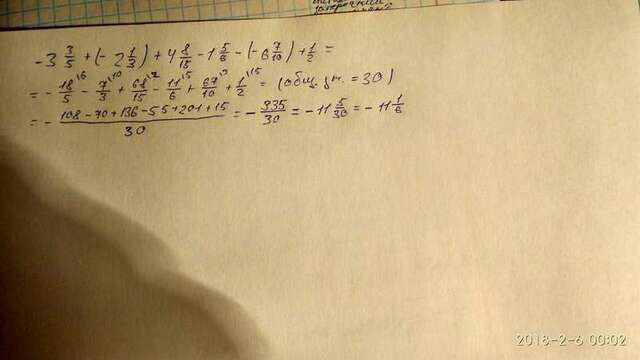 -3 3/5 + (-2 1/3) + 4 8/15 - 1 5/6 - (-6 7/10) + 1/2 =
= - 18/5 \6 - 7/3 \10 + 68/15 \2 - 11/6 \5 + 67/10 \3 + 1/2 \15 = (общ. зн. = 30)
= - 108-70+136-55+201+15/30 = - 335/30 = - 11 5/30 = - 11 1/6
2018-2-6 00:02